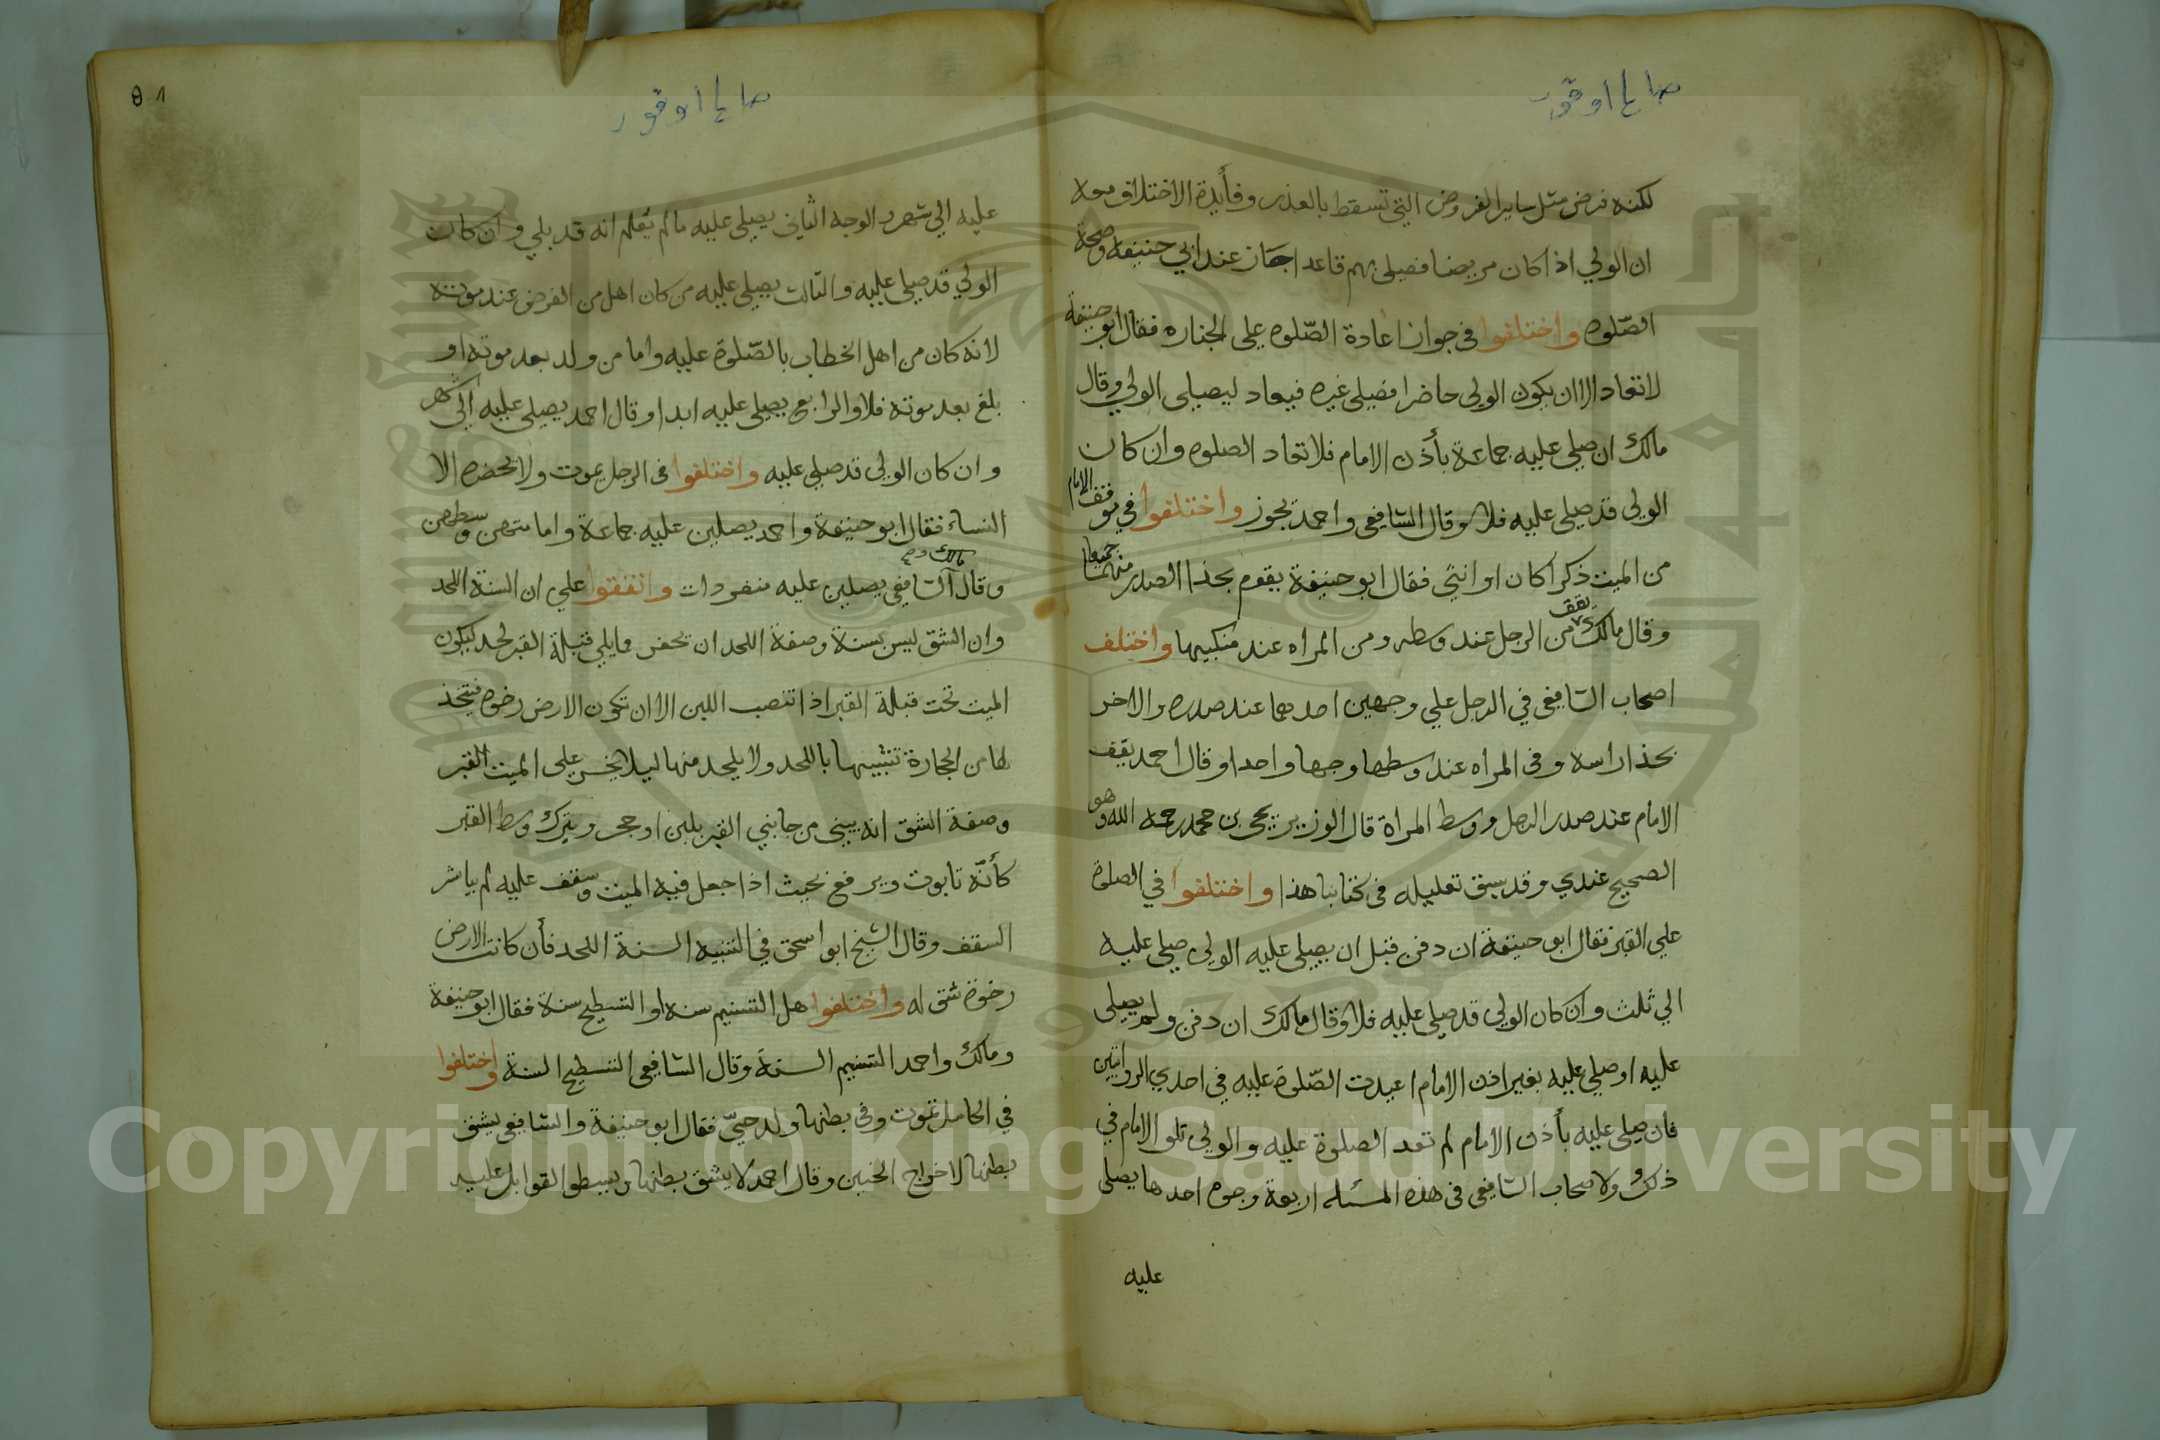 لكنه فرض مثل ساير الفروض التي تسقط بالعذر وفأيدة الاختلاف معه
ان الولي اذا كان مريضا فصلى بهم قاعدا جاز عند ابي حنيفة وصحة
الصّلوه واختلفوا في جواز اعادة الصّلوه على الجنازه فقال ابو حنيفة
لا تعاد الا ان يكون الولي حاضرا فصلى غيره فيعاد ليصلى الولي وقال
مالك ان صلى عليه جماعة بأذن الامام فلا تعاد الصلوه وان كان
الولي قد صلى عليه فلا وقال الشافعي واحمد يجوز واختلفوا في موقف الامام
من الميت ذكرا كان او انثي فقال ابو حنيفة يقوم بحذا الصدر منهما جميعا
وقال مالك يقف من الرجل عند وسطه ومن المراه عند منكبيها واختلف
اصحاب الشافعي في الرجل علي وجهين احدهما عند صدره والاخر
بحذا راسه وفي المراه عند وسطها وجها واحدا وقال احمد يقف
الامام عند صدر الرجل ووسط المراة قال الوزير يحي بن محمد رحمه الله وهو
الصحيح عندي وقد سبق تعليله في كتابنا هذا واختلفوا في الصلوة
علي القبر فقال ابو حنيفة ان دفن قبل ان يصلى عليه الولي صلى عليه
الي ثلث وان كان الولي قد صلى عليه فلا وقال مالك ان دفن ولم يصلى
عليه او صلي عليه بغير اذن الامام اعيدت الصّلوة عليه في احدي الروايتين
فان صلى عليه بأذن الامام لم تعد الصلوة عليه والولي تلو الامام في
ذلك ولاصحاب الشافعي في هذه المسئله اربعة وجوه احدها يصلى
عليه
عليه الي شهر والوجه الثاني يصلى عليه ما لم يُعلم انه قد بلي وان كان
الولي قد صلى عليه والثالث يصلى عليه من كان اهل من الفرض عند موته
لانه كان من اهل الخطاب بالصّلوة عليه واما من ولد بعد موته او
بلغ بعد موته فلا والرابع يصلى عليه ابدا وقال احمد يصلى عليه الي شهر
وان كان الولي قد صلى عليه واختلفوا في الرجل يموت ولا يحضره الا
النساء فقال ابو حنيفة واحمد يصلين عليه جماعة وامامتهن وسطهن
وقال مالك و الشافعي يصلين عليه منفردات واتفقوا علي ان السنة اللحد
وان الشق ليس بسنة وصفة اللحد ان تحفر مايلي قبلة القبر لحد ليكون
الميت تحت قبلة القبر اذا تنصب اللبن الا ان تكون الارض رخوه فيتخذ
لها من الحجارة تشبيها باللحد ولا يلحد منها ليلا يخس على الميت القبر
وصفة الشق انه يبنى من جانبي القبر بلبن او حجر ويترك وسط القبر
كأنّه تابوت ويرفع بحيث اذا جعل فيه الميت وسقف عليه لم يباشر
السقف وقال الشيخ ابو اسحق في التنبيه السنة اللحد فأن كانت الارض
رخوة شق له واختلفوا هل التسنيم سنه او التسطيح سنة فقال ابو حنيفة
ومالك واحمد التسنيم السنة وقال الشافعي التسطيح السنة واختلفوا
في الحامل تموت وفي بطنها ولد حيّ فقال ابو حنيفة والشافعي يشق
بطنها لاخراج الجنين وقال احمد لا يشق بطنها ويسطو القوابل عليه
81
Copyright © King Saud University